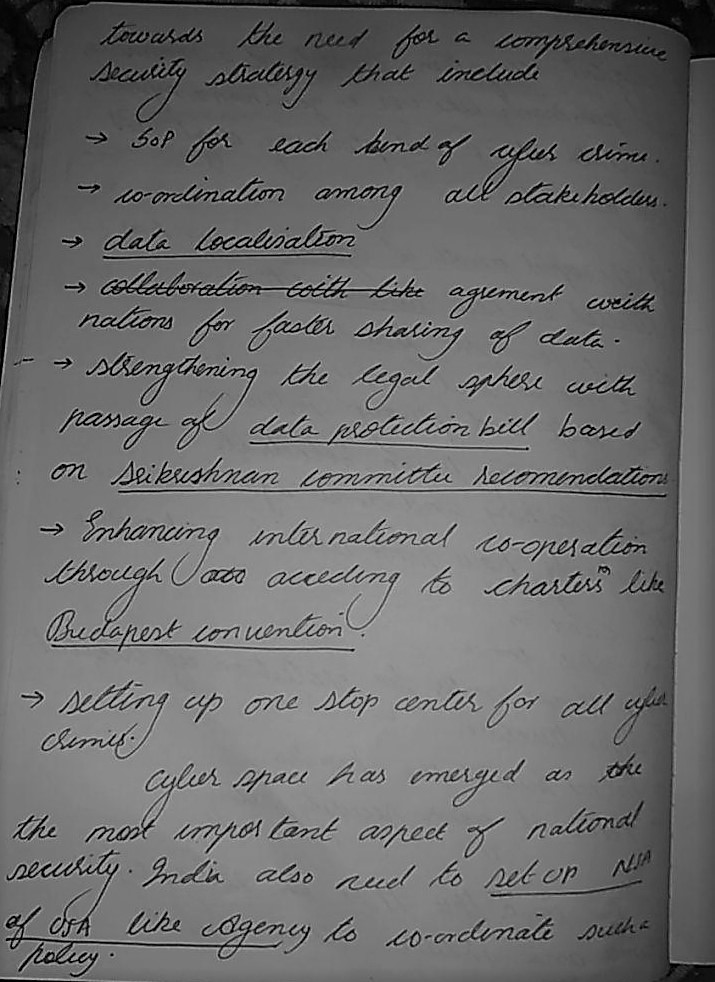 towards the need for a comprehensive
security stratergy that include
→ SoP for each kind of cyber crime.
→ co-ordination among all stakeholders.
→ data localisation
→ collaboration with like agrement with
nations for faster sharing of data.
→ strengthening the legal sphere with
passage of data protection bill based
on Srikrishnan committee recomendations
→ Enhancing international co-operation
through acceding to charters like
Budapest convention.
→ setting up one stop center for all cyber
crimes.
Cyber space has emerged as the
the most important aspect of national
security. India also need to set up NSA
of USA like Agency to co-ordinate such a
policy.